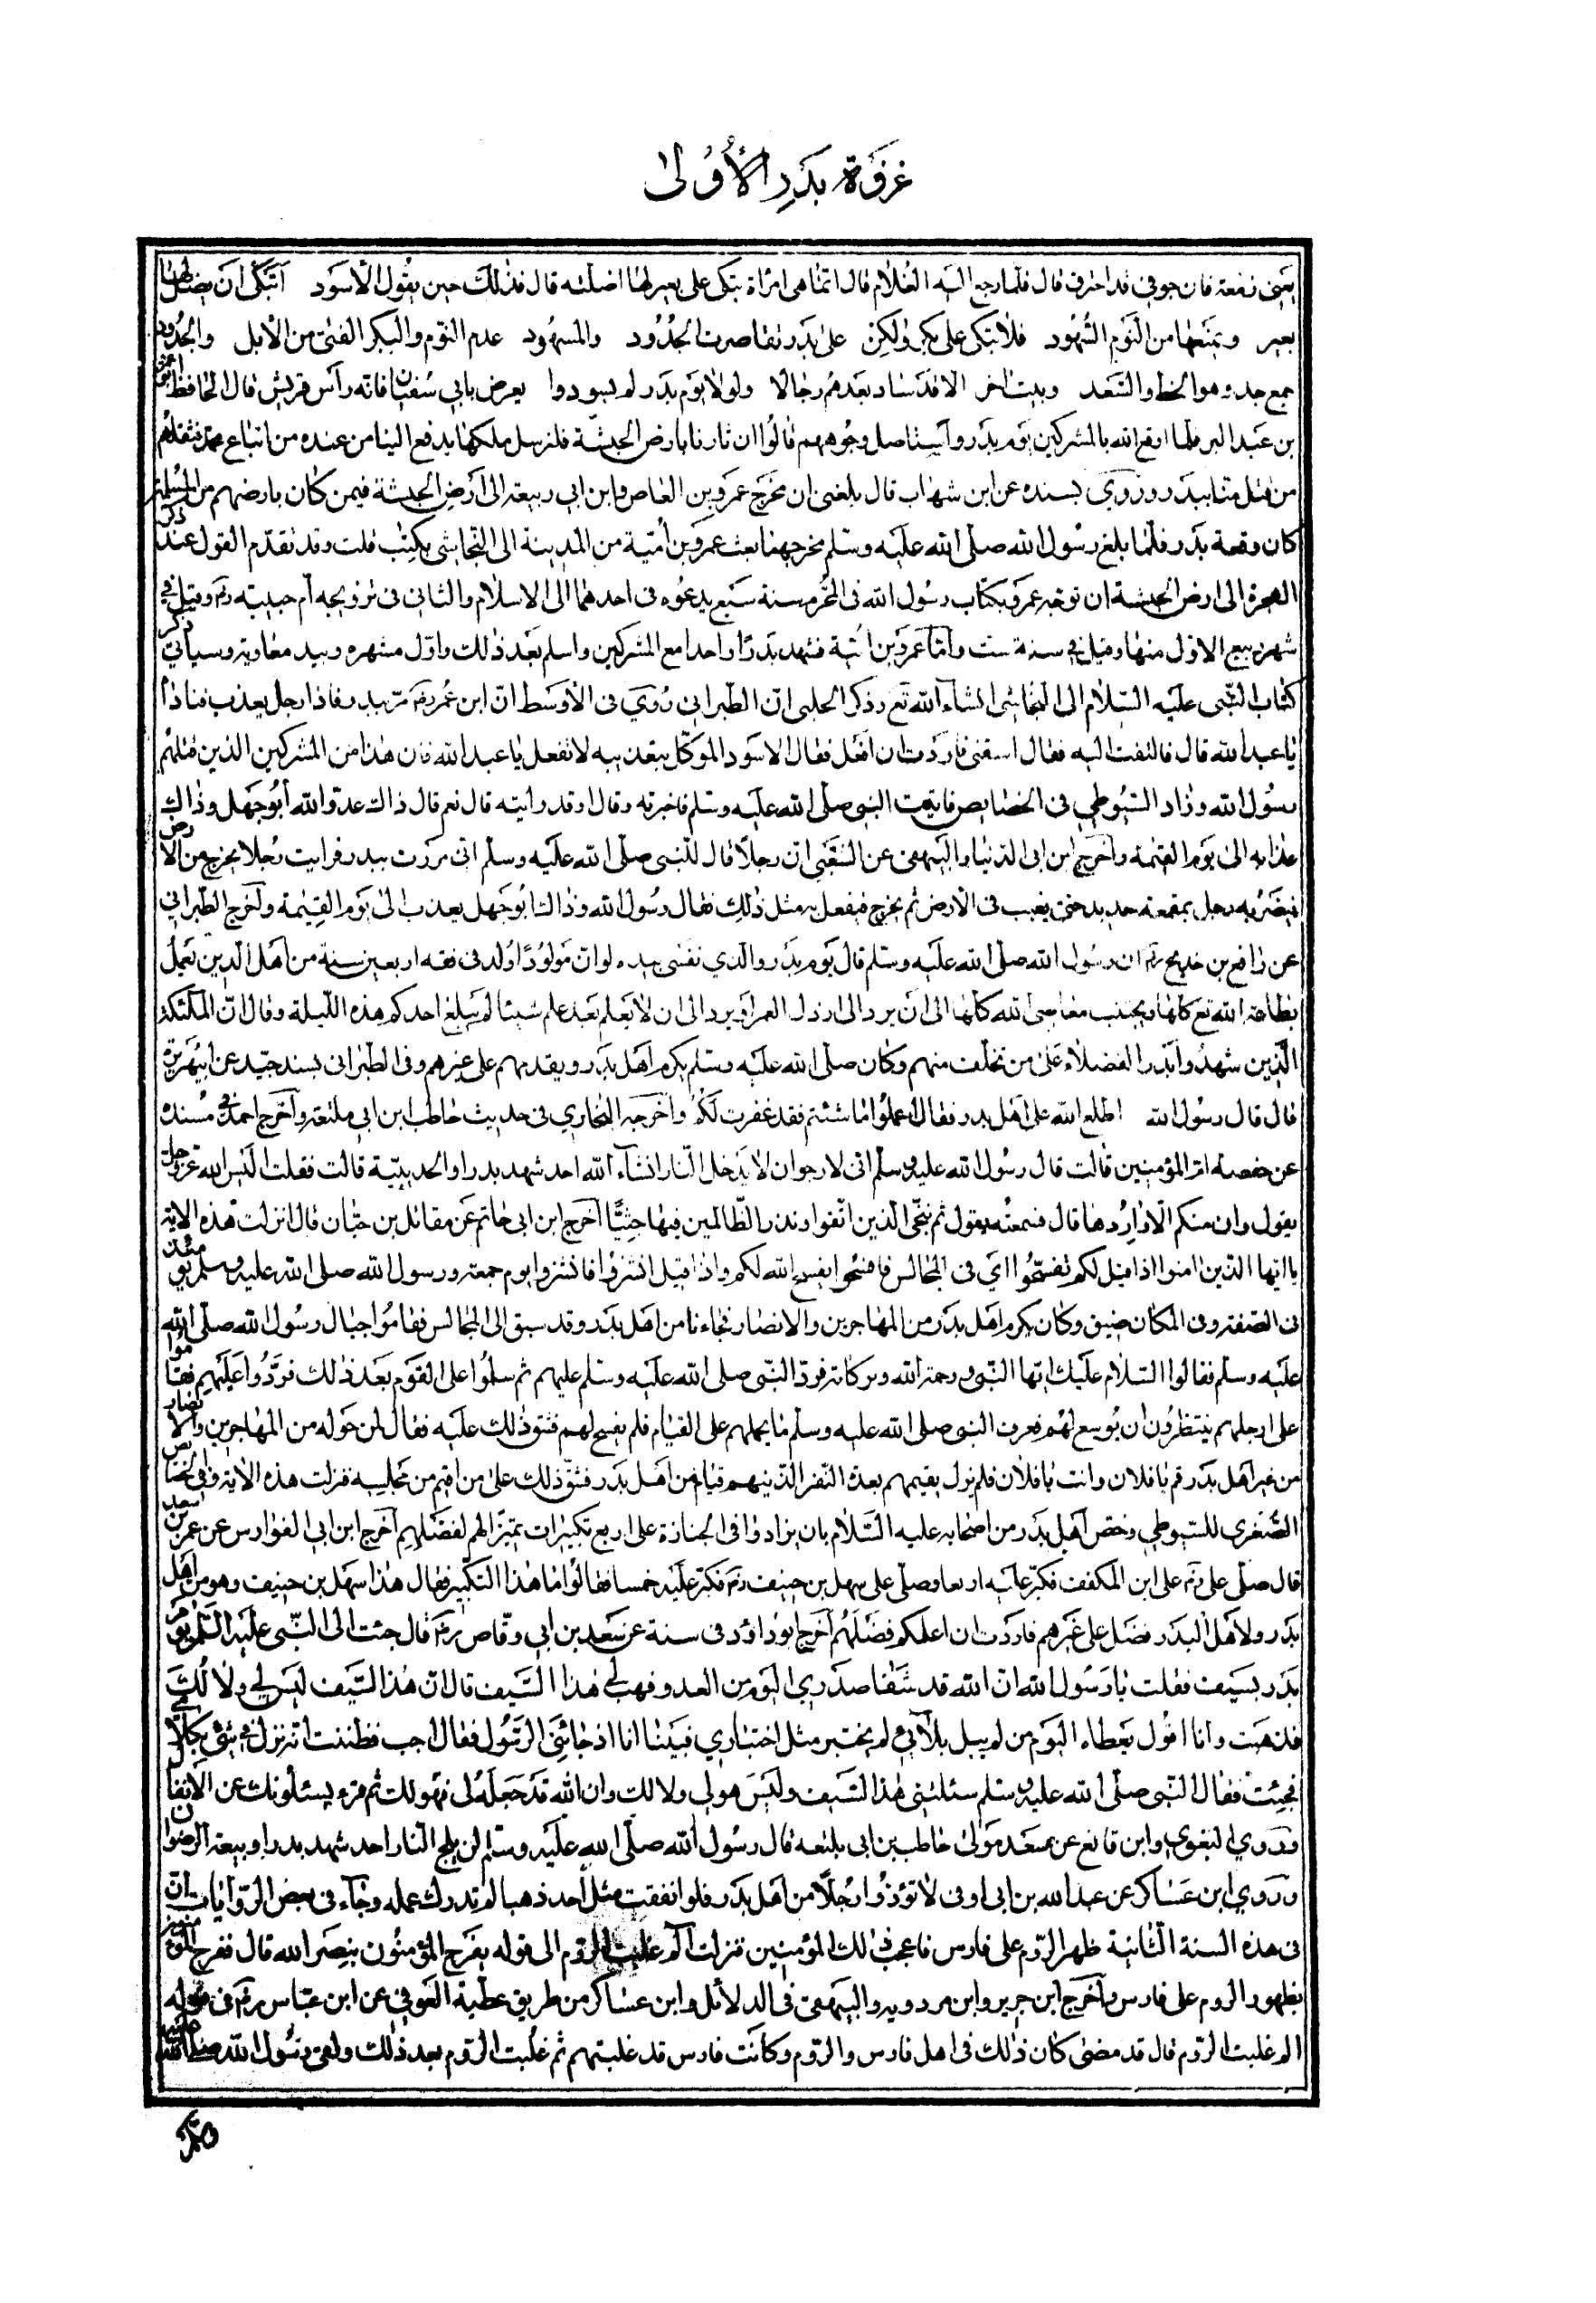 غزوة بدر الأولى
يعني زمعة فان جوفي قد احترق قال فلما رجع اليه الغلام قال انما هي امرأة تبكي على بعير لها اضلته قال فذلك حين يقول الأسود أتبكي ان يضل لها
بعير ويمنعها من النوم السهود فلا تبكي على بكر ولكن على بدر تقاصرت الجدود والسهود عدم النوم والبكر الفتى من الابل والجدود
جمع جد وهو الحظ والسعد وبيت اخر الا قد ساد بعدهم رجالا ولولا يوم بدر لم يسودوا يعرض بابي سفيان فانه رأس قريش قال الحافظ ابو عمر
بن عبد البر فلما اوقع الله بالمشركين يوم بدر واستاصل وجوههم قالوا ان ثارنا بارض الحبشة فلنرسل ملكها يدفع الينا من عنده من اتباع محمد نقتلهم
من قتل منا ببدر وروي بسنده عن ابن شهاب قال بلغني ان مخرج عمرو بن العاص وابن ابي ربيعة الى أرض الحبشة فيمن كان بارضهم من المسلمين
كان وقعة بدر فلما بلغ رسول الله صلى الله عليه وسلم مخرجهما بعث عمرو بن أمية من المدينة الى النجاشي بكتب قلت وقد تقدم القول عند ذكر
الهجرة الى ارض الحبشة ان توجه عمرو بكتاب رسول الله في المحرم سنة سبع يدعوه في احدهما الى الاسلام والثاني في تزويجه أم حبيبة رض وقيل في
شهر ربيع الاول منها وقيل في سنة ست وأما عمرو بن أمية فشهد بدرا واحدا مع المشركين واسلم بعد ذلك واول مشهده وبيد معاوية وسيأتي ذكر
كتاب النبي عليه السلام الى النجاشي انشاء الله تع وذكر الحلبي ان الطبراني روي في الأوسط ان ابن عمر رض مر ببدر فاذا رجل يعذب فناداه
يا عبد الله قال فالتفت اليه فقال اسقني فاردت ان افعل فقال الاسود الموكل بتعذيبه لا تفعل يا عبد الله فان هذا من المشركين الذين قتلهم
رسول الله وزاد السيوطي في الخصايص فاتيت النبي صلى الله عليه وسلم فاخبرته وقال اوقد رايته قال نعم قال ذاك عدو الله أبو جهل وذاك
عذابه الى يوم القيمة وأخرج ابن ابي الدنيا والبيهقي عن الشعبي ان رجلا قال للنبي صلى الله عليه وسلم اني مررت ببدر فرايت رجلا يخرج من الارض
فيضربه رجل بمقمعة حديد حتى يغيب في الارض ثم يخرج فيفعل به مثل ذلك فقال رسول الله وذاك ابو جهل يعذب الى يوم القيمة وأخرج الطبراني
عن رافع بن خديج رض ان رسول الله صلى الله عليه وسلم قال يوم بدر والذي نفسي بيده لو ان مولودا ولد في فقه اربعين سنة من أهل الدين يعمل
بطاعة الله تع كلها ويجتنب معاصي الله كلها الى ان يرد الى ارذل العمر او يرد الى ان لا يعلم بعد علم شيئا لم يبلغ احدكم هذه الليلة وقال ان الملئكة
الذين شهدوا بدرا لفضلاء على من تخلف منهم وكان صلى الله عليه وسلم يكرم اهل بدر ويقدمهم على غيرهم وفي الطبراني بسند جيد عن ابي هريرة
قال قال رسول الله اطلع الله على اهل بدر فقال اعملوا ما شئتم فقد غفرت لكم وأخرجه البخاري في حديث حاطب ابن ابي بلتعة وأخرج احمد في مسنده
عن حفصة ام المؤمنين قالت قال رسول الله عليه وسلم اني لارجو ان لا يدخل النار انشاء الله احد شهد بدرا والحديبية قالت فقلت اليس الله عز وجل
يقول وان منكم الا واردها قال فسمعته يقول ثم ننجي الذين اتقوا ونذر الظالمين فيها جثيا أخرج ابن ابي حاتم عن مقاتل بن حبان قال انزلت هذه الاية
يا ايها الذين امنوا اذا قيل لكم تفسحوا اي في المجالس فافسحوا يفسح الله لكم واذا قيل انشزوا فانشزوا يوم جمعة ورسول الله صلى الله عليه وسلم يومئذ
في الصفة وفي المكان ضيق وكان يكرم اهل بدر من المهاجرين والانصار فجاء ناس من اهل بدر وقد سبق الى المجالس فقاموا حيال رسول الله صلى الله
عليه وسلم فقالوا السلام عليك ايها النبي ورحمة الله وبركاته فرد النبي صلى الله عليه وسلم عليهم ثم سلموا على القوم بعد ذلك فردوا عليهم فقاموا
على ارجلهم ينتظرون ان يوسع لهم فعرف النبي صلى الله عليه وسلم ما يحملهم على القيام فلم يفسح لهم فشق ذلك عليه فقال لمن حوله من المهاجرين والانصار
من غير اهل بدر قم يا فلان وانت يا فلان فلم يزل يقيمهم بعدة النفر الذين هم قيام من اهل بدر فشق ذلك على من اقيم من مجلسه فنزلت هذه الاية وفي الخصايص
الصغرى للسيوطي وخص اهل بدر من اصحابه عليه السلام بان يزادوا في الجنازة على اربع تكبيرات تميزا لهم لفضلهم أخرج ابن ابي الفوارس عن عمر بن سعد
قال صلى علي رض على ابن المكفف فكبر عليه اربعا وصلى على سهل بن حنيف رض فكبر عليه خمسا فقالوا ما هذا التكبير فقال هذا سهل بن حنيف وهو من اهل
بدر ولاهل البدر فضل على غيرهم فاردت ان اعلمكم فضلهم أخرج ابو داود في سنة عن سعد بن ابي وقاص رض قال جئت الى النبي عليه السلام يوم
بدر بسيف فقلت يا رسول الله ان الله قد شفا صدري اليوم من العدو فهب لي هذا السيف قال ان هذا السيف ليس لي ولا لك
فذهبت وانا اقول يعطاه اليوم من لم يبل بلائي ولم يختبر مثل اختباري فبينا انا اذ جائني الرسول فقال اجب فظننت انه نزل في شئ بكلامي
فجئت فقال النبي صلى الله عليه وسلم سئلتني هذا السيف وليس هو لي ولا لك وان الله قد جعله لي فهو لك ثم قرء يسئلونك عن الانفال
وروي البغوي وابن قانع عن سعد مولى حاطب بن ابي بلتعه قال رسول الله صلى الله عليه وسلم لن يلج النار احد شهد بدرا وبيعة الرضوان
وروي ابن عساكر عن عبد الله بن ابي اوفى لا تؤذوا رجلا من اهل بدر فلو انفقت مثل احد ذهبا لم تدرك عمله وجاء في بعض الروايات ان
في هذه السنة الثانية ظهر الروم على فارس فاعجب ذلك المؤمنين فنزلت الم غلبت الروم الى قوله يفرح المؤمنون بنصر الله قال ففرح المؤمنون
بظهور الروم على فارس وأخرج ابن جرير وابن مردويه والبيهقي في الدلائل وابن عساكر من طريق عطية العوفي عن ابن عباس رض في قوله
الم غلبت الروم قال قد مضى كان ذلك في اهل فارس والروم وكانت فارس قد غلبتهم ثم غلبت الروم بعد ذلك ولقي رسول الله صلى الله عليه